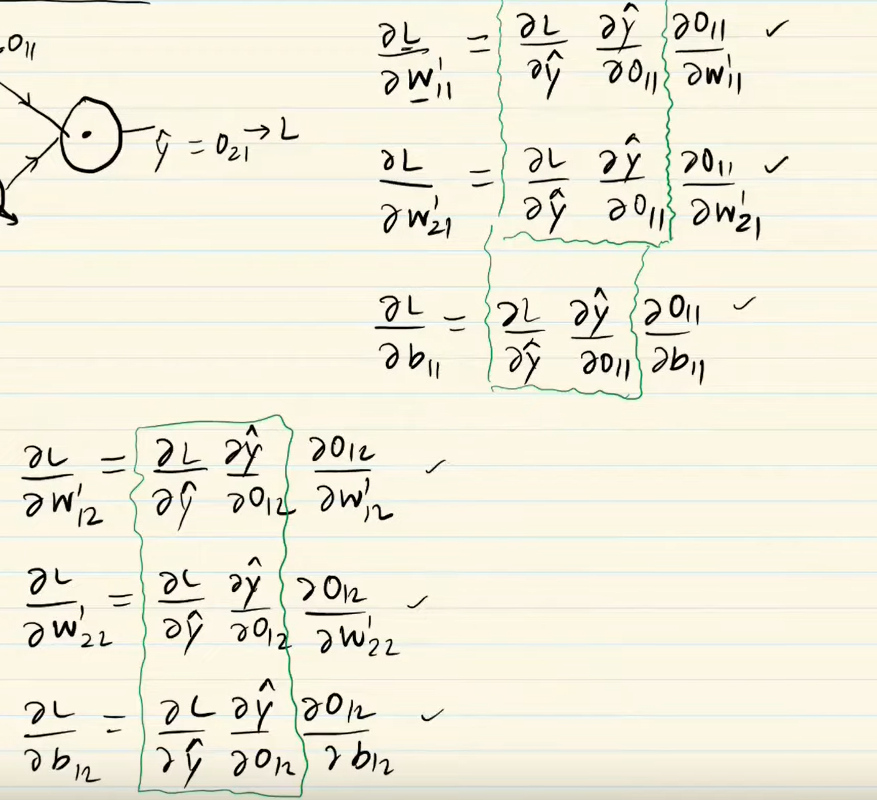 O₁₁
ŷ = O₂₁ → L
∂L/∂W¹₁₁ = ∂L/∂ŷ ∂ŷ/∂O₁₁ ∂O₁₁/∂W¹₁₁ ✓
∂L/∂W¹₂₁ = ∂L/∂ŷ ∂ŷ/∂O₁₁ ∂O₁₁/∂W¹₂₁ ✓
∂L/∂b₁₁ = ∂L/∂ŷ ∂ŷ/∂O₁₁ ∂O₁₁/∂b₁₁ ✓
∂L/∂W¹₁₂ = ∂L/∂ŷ ∂ŷ/∂O₁₂ ∂O₁₂/∂W¹₁₂ ✓
∂L/∂W¹₂₂ = ∂L/∂ŷ ∂ŷ/∂O₁₂ ∂O₁₂/∂W¹₂₂ ✓
∂L/∂b₁₂ = ∂L/∂ŷ ∂ŷ/∂O₁₂ ∂O₁₂/∂b₁₂ ✓